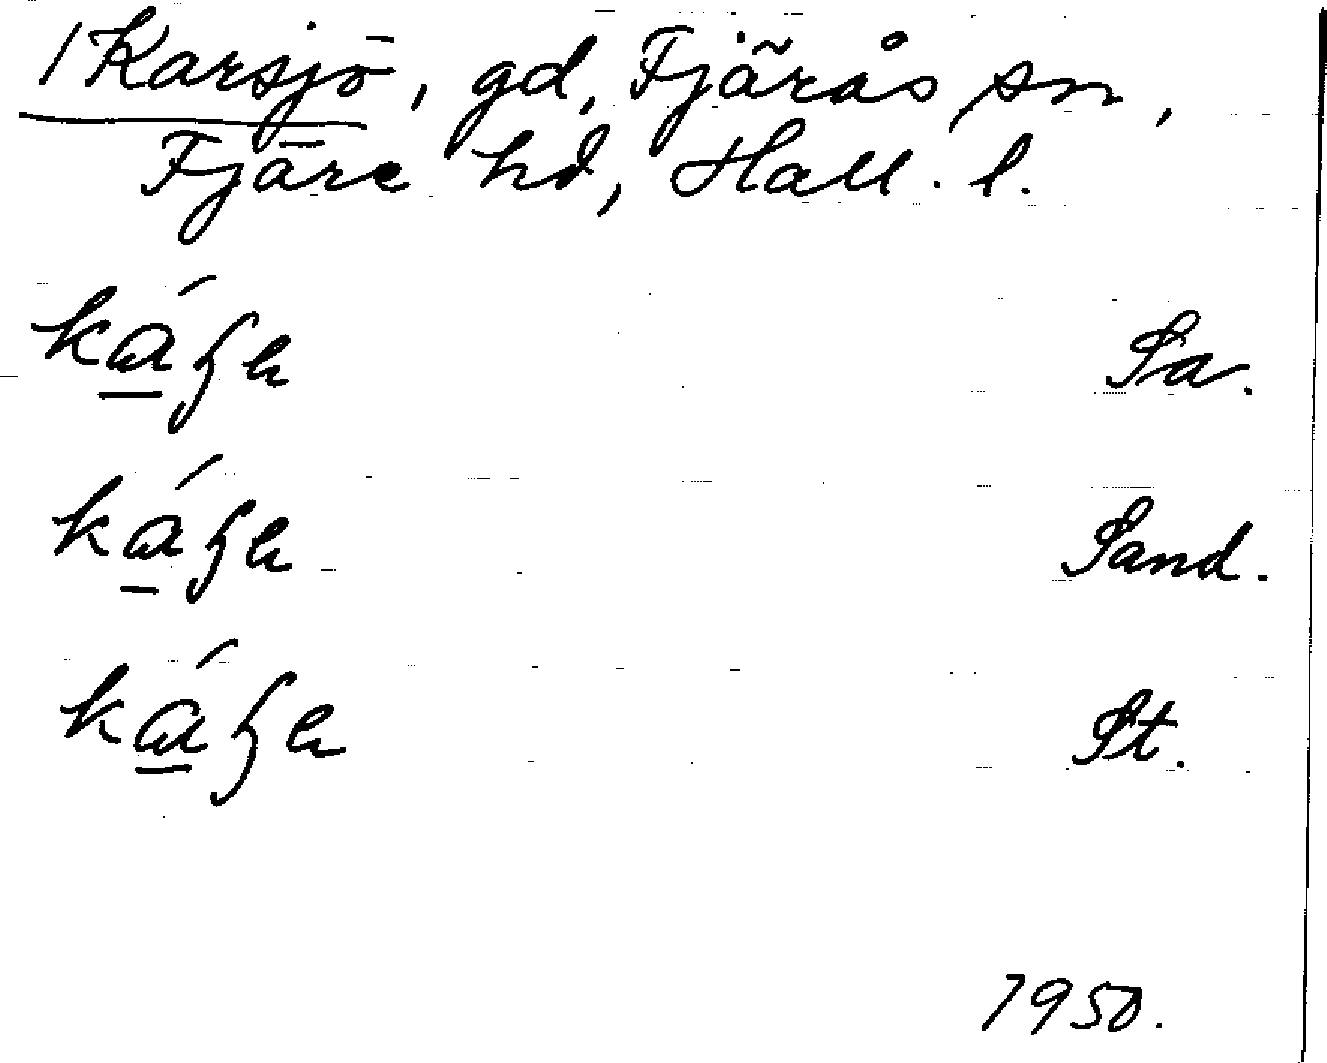 1 Karsjö, gd, Fjärås sn,
Fjäre hd, Hall. l.
Sa.
Sand.
St.
1950.